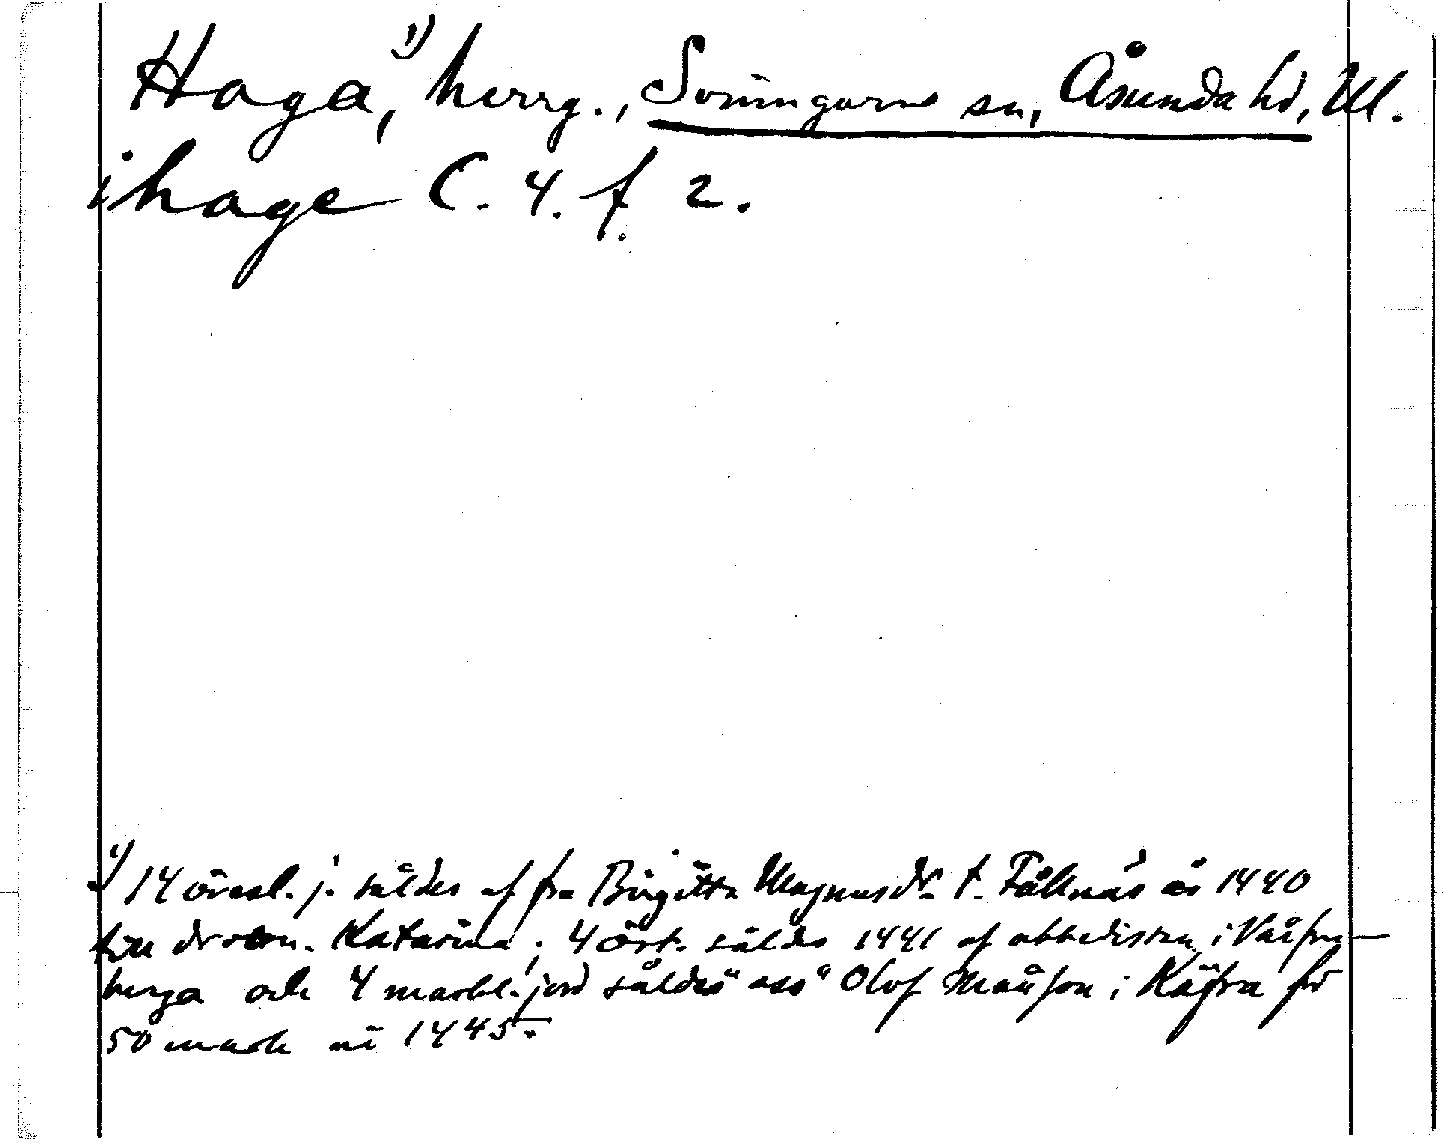 Haga, ¹) herrg., Svinngarns sn, Åsunda hd, Ul.
i hage C. 4. f. 2.
¹) 14 öresl. j. såldes af fru Birgitta Magnusdr. t. Fållnäs år 1440
till drotn. Katarina; 4 ört. sålds 1441 af abbedissan i Vårfru-
berga och 4 markl. jord såldes Olof Månsson i Käfra för
50 mark ni 1445.